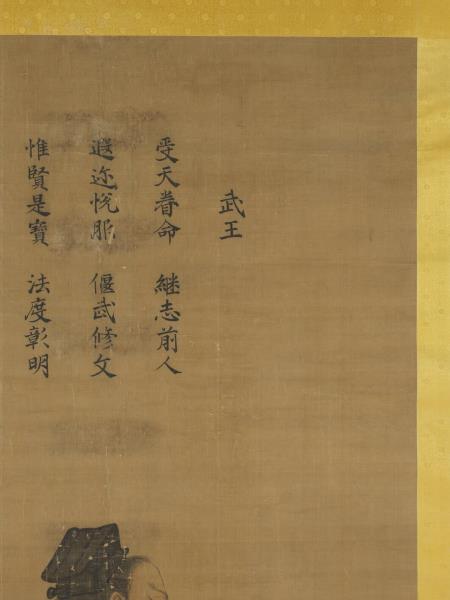 武王
受天眷命 継志前人
遐迩恱服 偃武修文
惟賢是寶 法度彰明